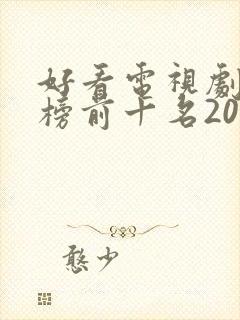 好看電視劇
榜前十名20
憨少